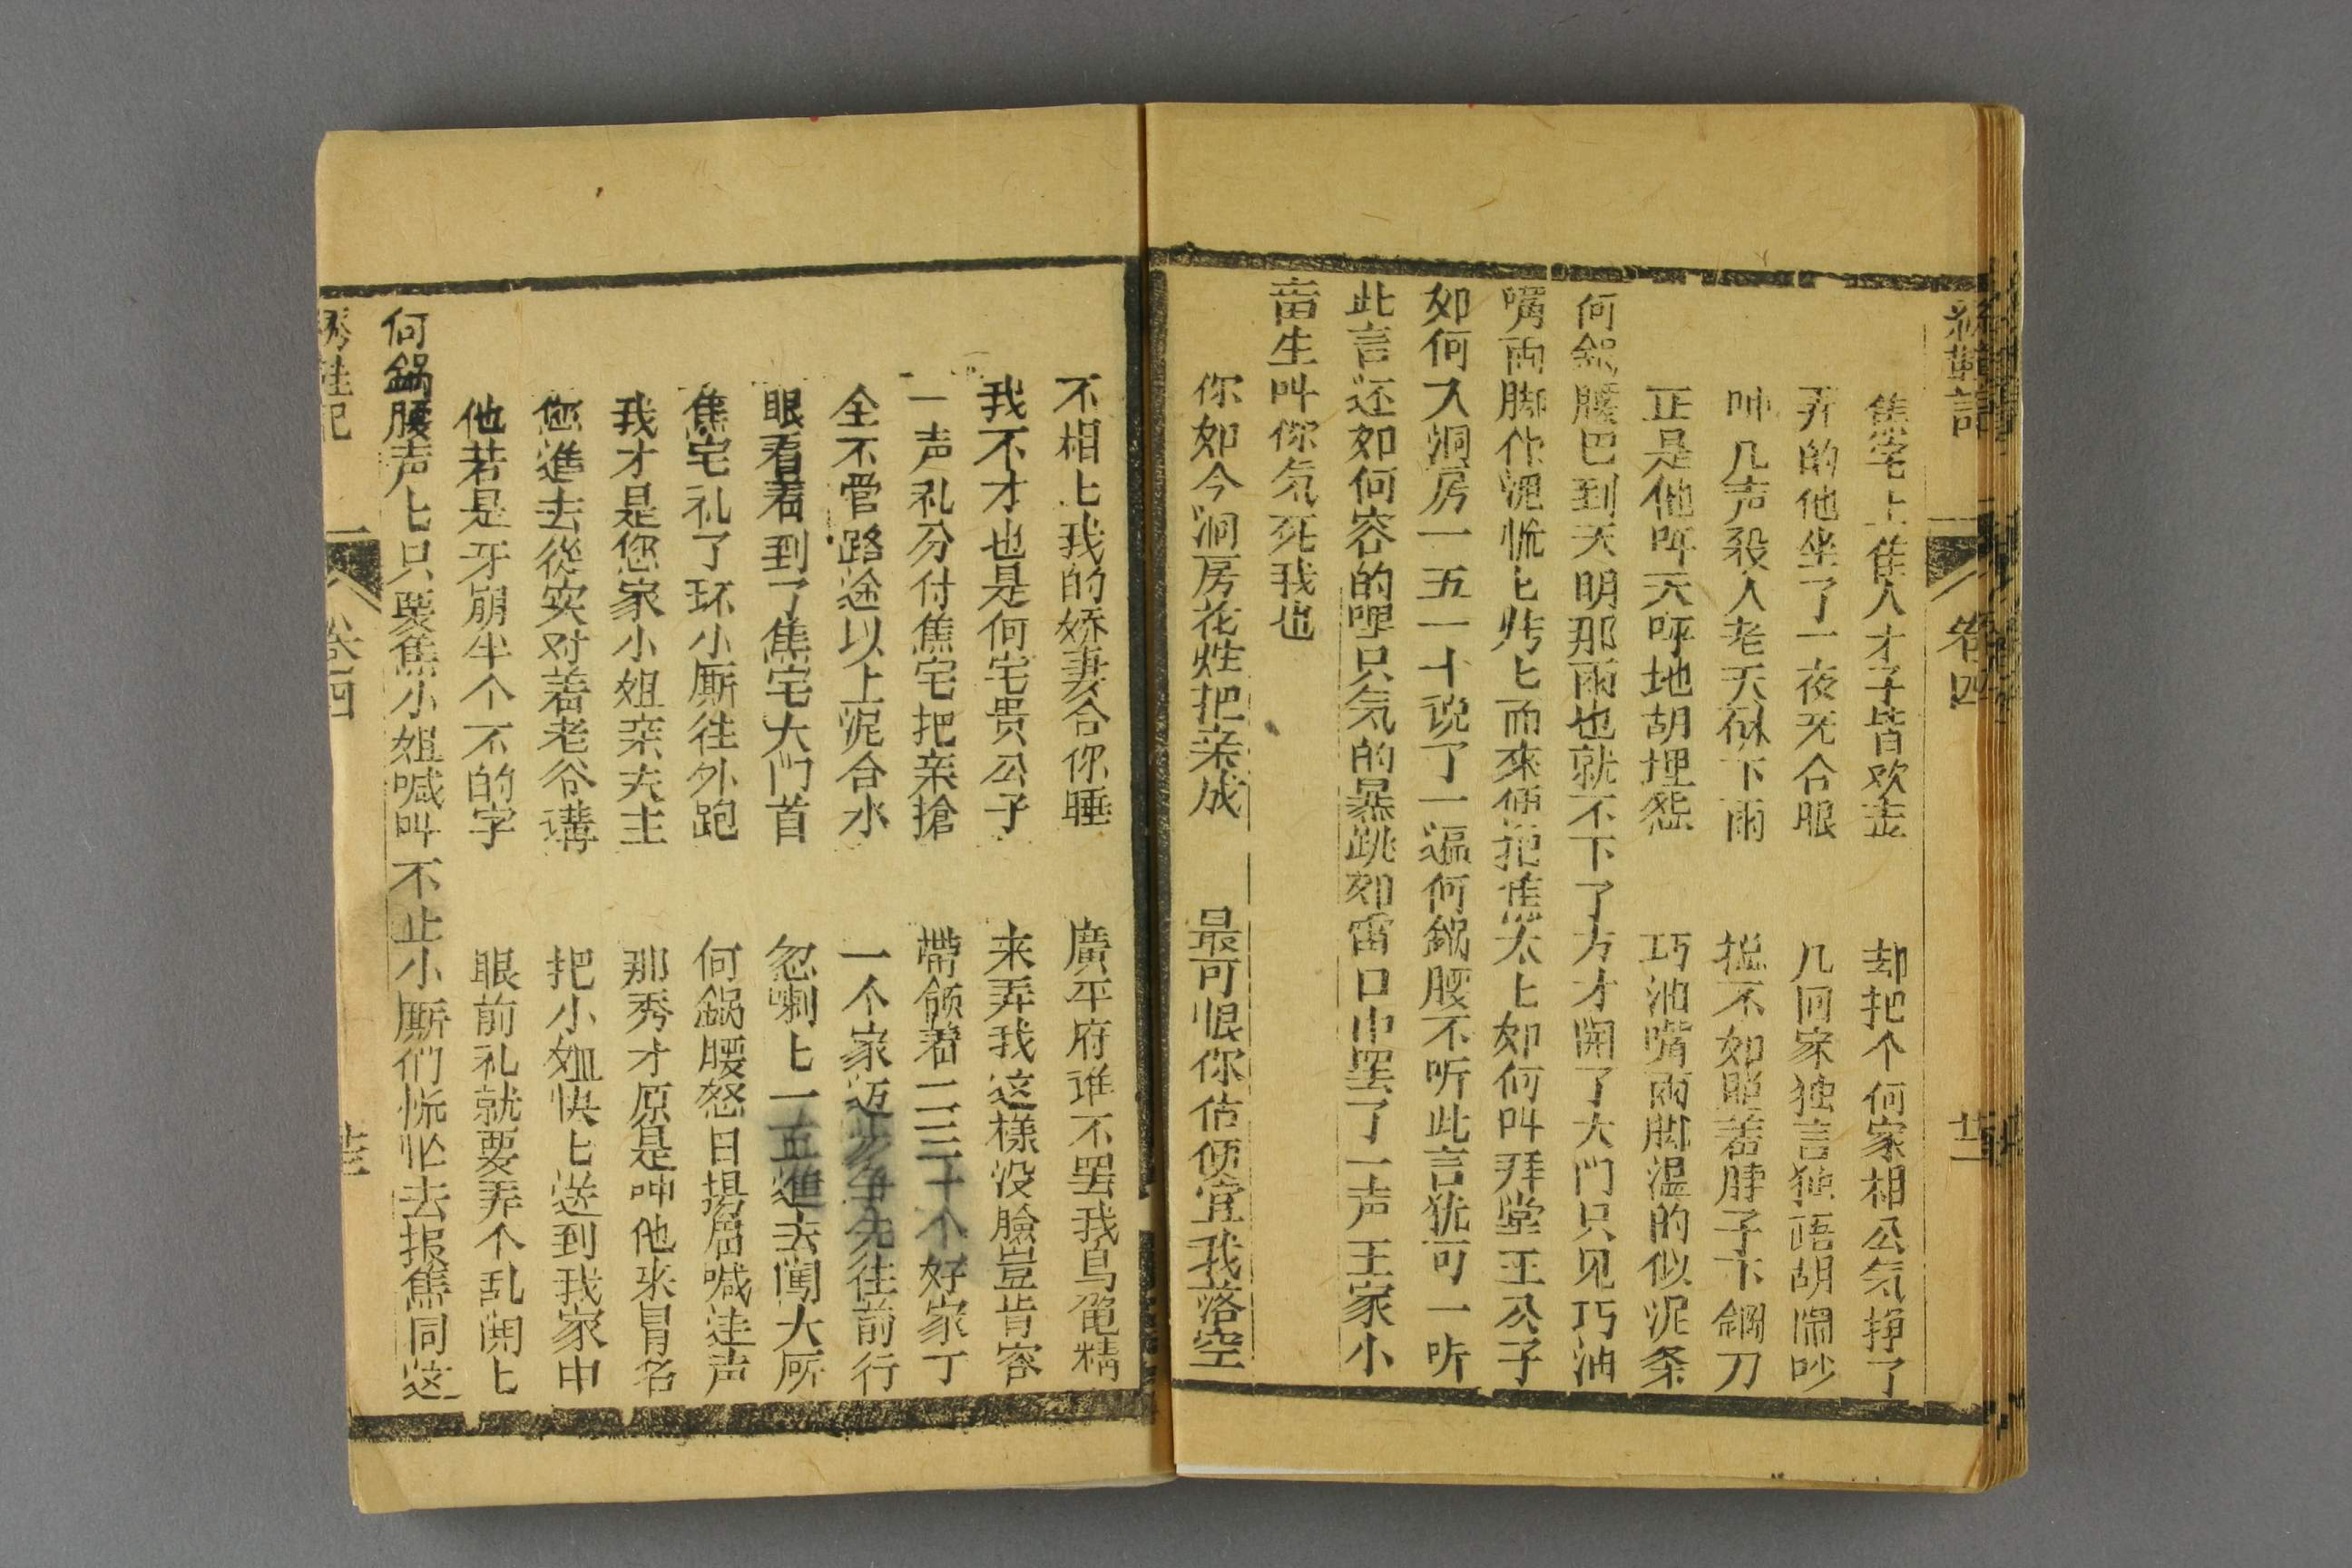 卷四
焦宅上焦人才子皆欢喜 却把个何家相公气掙了
弄的他坐了一夜无合眼 几回家独言独語胡鬧吵
呌几声殺人老天休下雨 不如照着脖子卞鋼刀
正是他呼天呼地胡埋怨 巧油嘴兩脚温的似泥条
何鍋腰巴到天明那雨也就不下了方才開了大门只见巧油
嘴兩脚作泥慌匕忙匕而來便把焦太上如何叫拜堂王公子
如何入洞房一五一十说了一遍何鍋腰不听此言犹可一听
此言还如何容的哩只气的暴跳如雷口中罢了一声王家小
畜生叫你气死我也
你如今洞房花烛把亲成 最可恨你佔便宜我落空
不相上我的娇妻合你睡 廣平府谁不罢我烏龟精
我不才也是何宅贵公子 来弄我这樣没臉豈肯容
一声礼分付焦宅把亲搶 帶領着二三十个好家丁
全不管路途以上泥合水 一个家迈步争先往前行
眼看着到了焦宅大门首 忽喇匕一直進去闖大所
焦宅礼了环小厮往外跑 何鍋腰怒目揚眉喊連声
我才是您家小姐亲夫主 那秀才原是呌他來冒名
您進去從实对着老爷講 把小姐快匕送到我家中
他若是牙崩半个不的字 眼前礼就要弄个乱開匕
何鍋腰声匕只要焦小姐喊叫不止小厮们慌忙去报焦同这
秀鞋记 卷四